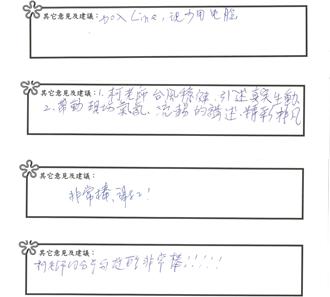 其它意見及建議：加入Line，說少用电脑
其它意見及建議：1.柯老師台風穩健、引述真実生動
2.帶動現場氣氛、流暢的講述、精彩
其它意見及建議：
非常棒，謝謝！
其它意見及建議：
柯老師的分享 非常棒！！！！！